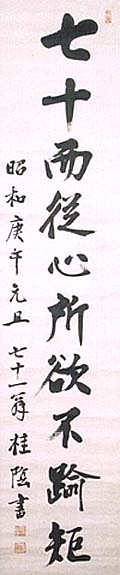 七十而従心所欲不踰矩
昭和庚午元旦 七十一翁 桂陰書